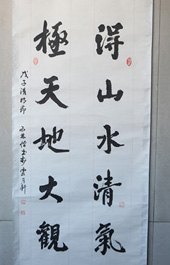 得山水清氣
極天地大觀
戊子清明節